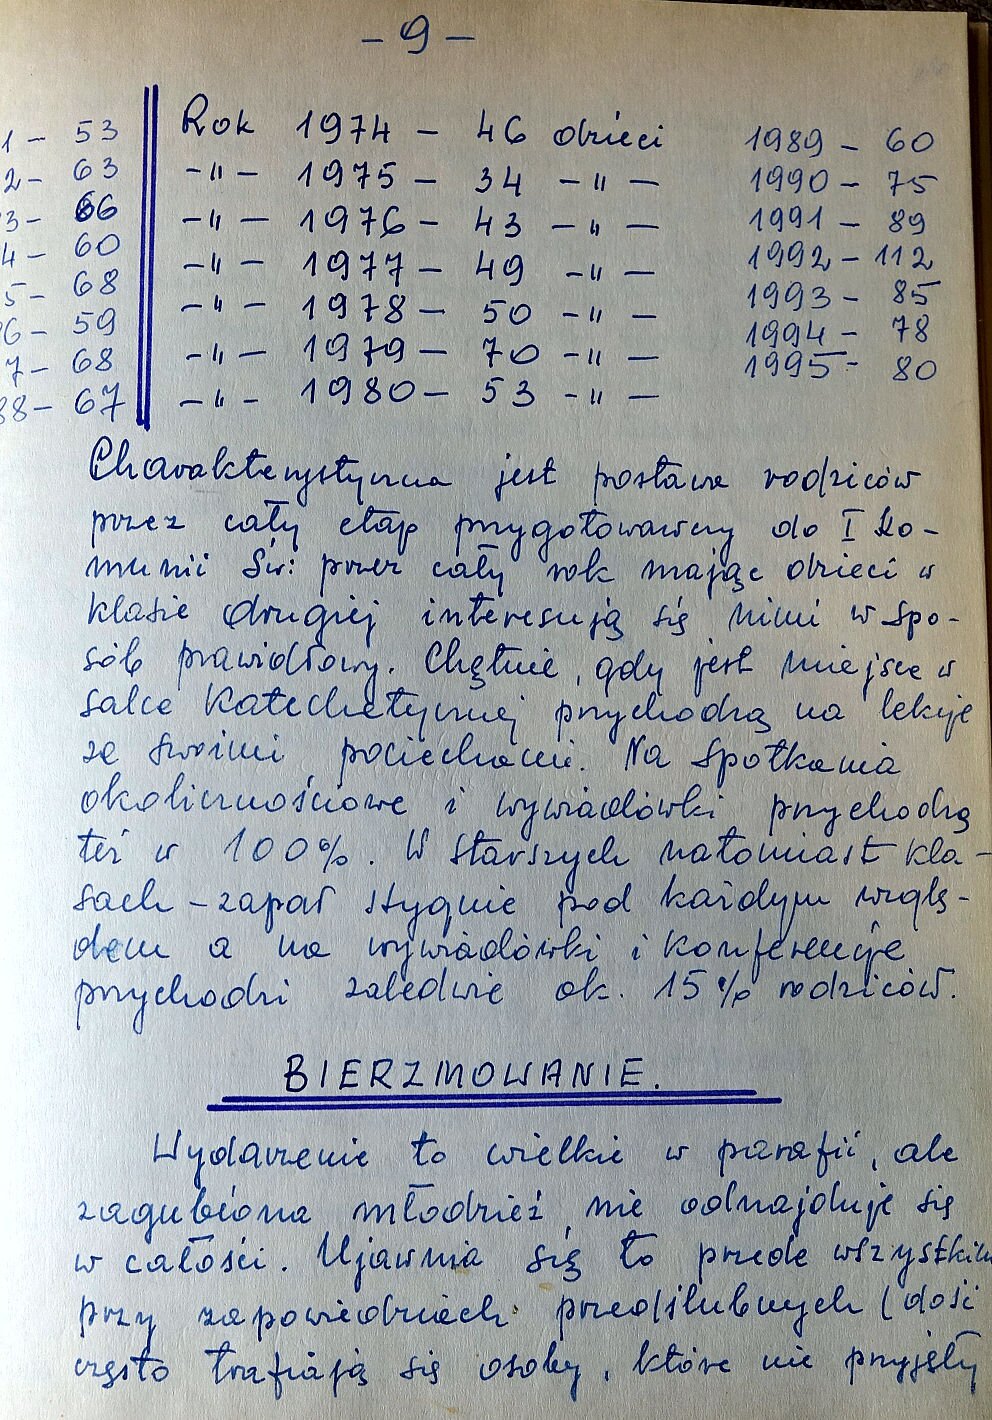 - 9 -
1 - 53
2 - 63
3 - 66
4 - 60
5 - 68
6 - 59
7 - 68
88 - 67
Rok 1974 - 46 dzieci
-"- 1975 - 34 -"-
-"- 1976 - 43 -"-
-"- 1977 - 49 -"-
-"- 1978 - 50 -"-
-"- 1979 - 70 -"-
-"- 1980 - 53 -"-
1989 - 60
1990 - 75
1991 - 89
1992 - 112
1993 - 85
1994 - 78
1995 - 80
Charakterystyczna jest postawa rodziców
przez cały etap przygotowawczy do I Ko-
munii Św: przez cały rok mając dzieci w
klasie drugiej interesują się nimi w spo-
sób prawidłowy. Chętnie, gdy jest miejsce w
salce Katechetycznej przychodzą na lekcje
ze swoimi pociechami. Na spotkania
okolicznościowe i wywiadówki przychodzą
też w 100%. W starszych natomiast kla-
sach - zapał stygnie pod każdym wzglę-
dem a na wywiadówki i konferencje
przychodzi zaledwie ok. 15% rodziców.
BIERZMOWANIE.
Wydarzenie to wielkie w parafii, ale
zagubiona młodzież, nie odnajduje się
w całości. Ujawnia się to przede wszystkim
przy zapowiedziach przedślubnych (dość
często trafiają się osoby, które nie przyjęły